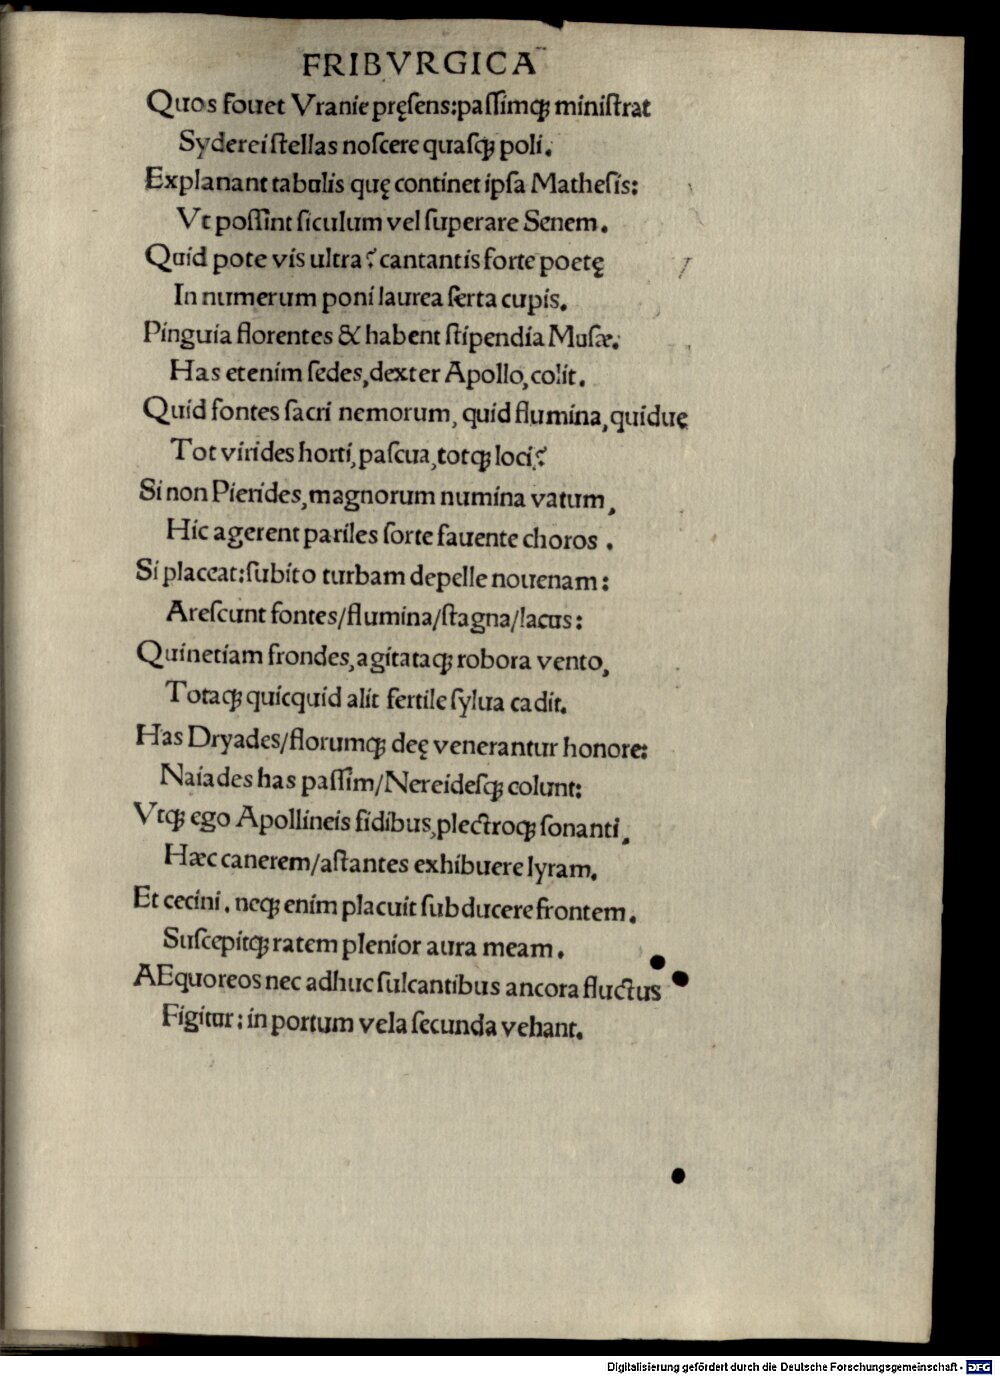 FRIBVRGICA
Quos fouet Vranie pręſens:paſſimqꝫ miniſtrat
Syderei ſtellas noſcere quaſqꝫ poli.
Explanant tabulis quę continet ipſa Matheſis:
Vt poſſint ſiculum vel ſuperare Senem.
Quid pote vis ultra? cantantis forte poetę
In numerum poni laurea ſerta cupis.
Pinguia florentes & habent ſtipendia Muſæ.
Has etenim ſedes,dexter Apollo,colit.
Quid fontes ſacri nemorum, quid flumina,quidue
Tot virides horti,paſcua,totqꝫ loci?
Si non Pierides,magnorum numina vatum,
Hic agerent pariles ſorte fauente choros .
Si placeat:ſubito turbam depelle nouenam:
Areſcunt fontes/flumina/ſtagna/lacus:
Quinetiam frondes,agitataqꝫ robora vento,
Totaqꝫ quicquid alit fertile ſylua cadit.
Has Dryades/florumqꝫ deę venerantur honore:
Naiades has paſſim/Nereideſqꝫ colunt:
Vtqꝫ ego Apollineis fidibus,plectroqꝫ ſonanti,
Hæc canerem/aſtantes exhibuere lyram.
Et cecini. neqꝫ enim placuit ſubducere frontem.
Suſcepitqꝫ ratem plenior aura meam.
AEquoreos nec adhuc ſulcantibus ancora fluctus
Figitur: in portum vela ſecunda vehant.
Digitalisierung gefördert durch die Deutsche Forschungsgemeinschaft - DFG